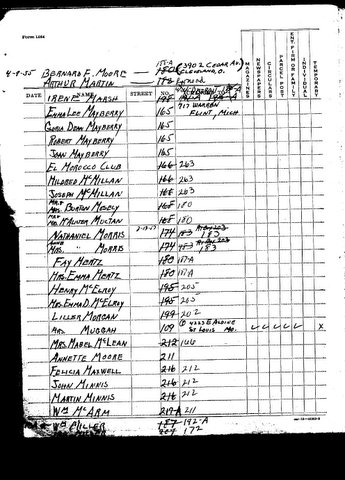 Form 1564
4-9-55 BERNARD F. MOORE — 180 (3902 CEDAR AV.
ARTHUR MARTIN CLEVELAND, O.
DATE NAME STREET NO.
MAGAZINES NEWSPAPERS CIRCULARS PARCEL POST ENT. FIRM OR FAMILY INDIVIDUAL TEMPORARY
IRENE MARSH 717 WARREN
EMMA LEE MAYBERRY 165 FLINT, MICH
GLORIA DEAN MAYBERRY 165
ROBERT MAYBERRY 165
JOAN MAYBERRY 165
EL MOROCCO CLUB 166 263
MILDRED McMILLAN 166 263
JOSEPH McMILLAN 166 263
MRS BURTON 168 180
McALISTER MULTAN 168 180
NATHANIEL MORRIS 174 183
MRS. " MORRIS 174 183
FAY HERTZ 180 117A
MRS. EMMA HERTZ 180 117A
HENRY McELROY 195 205
MRS. EMMA D. McELROY 195 205
LILLER MORGAN 199 202
MRS MUGGAH 109 ST LOUIS MO. X
MRS. MABEL McLEAN 212 166
ANNETTE MOORE 211
FELICIA MAXWELL 216 212
JOHN MINNIS 216 212
MARTIN MINNIS 216 212
WM McARM 217-A 211
WM MILLER 187 192-A
207 172